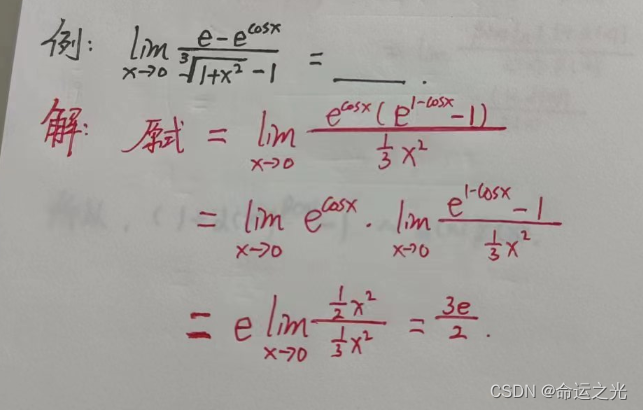 例: lim x→0 (e-e^cosx)/(∛(1+x²)-1) = ____ .
解: 原式 = lim x→0 (e^cosx(e^(1-cosx)-1))/(1/3 x²)
= lim x→0 e^cosx · lim x→0 (e^(1-cosx)-1)/(1/3 x²)
= e lim x→0 (1/2 x²)/(1/3 x²) = 3e/2 .
CSDN @命运之光